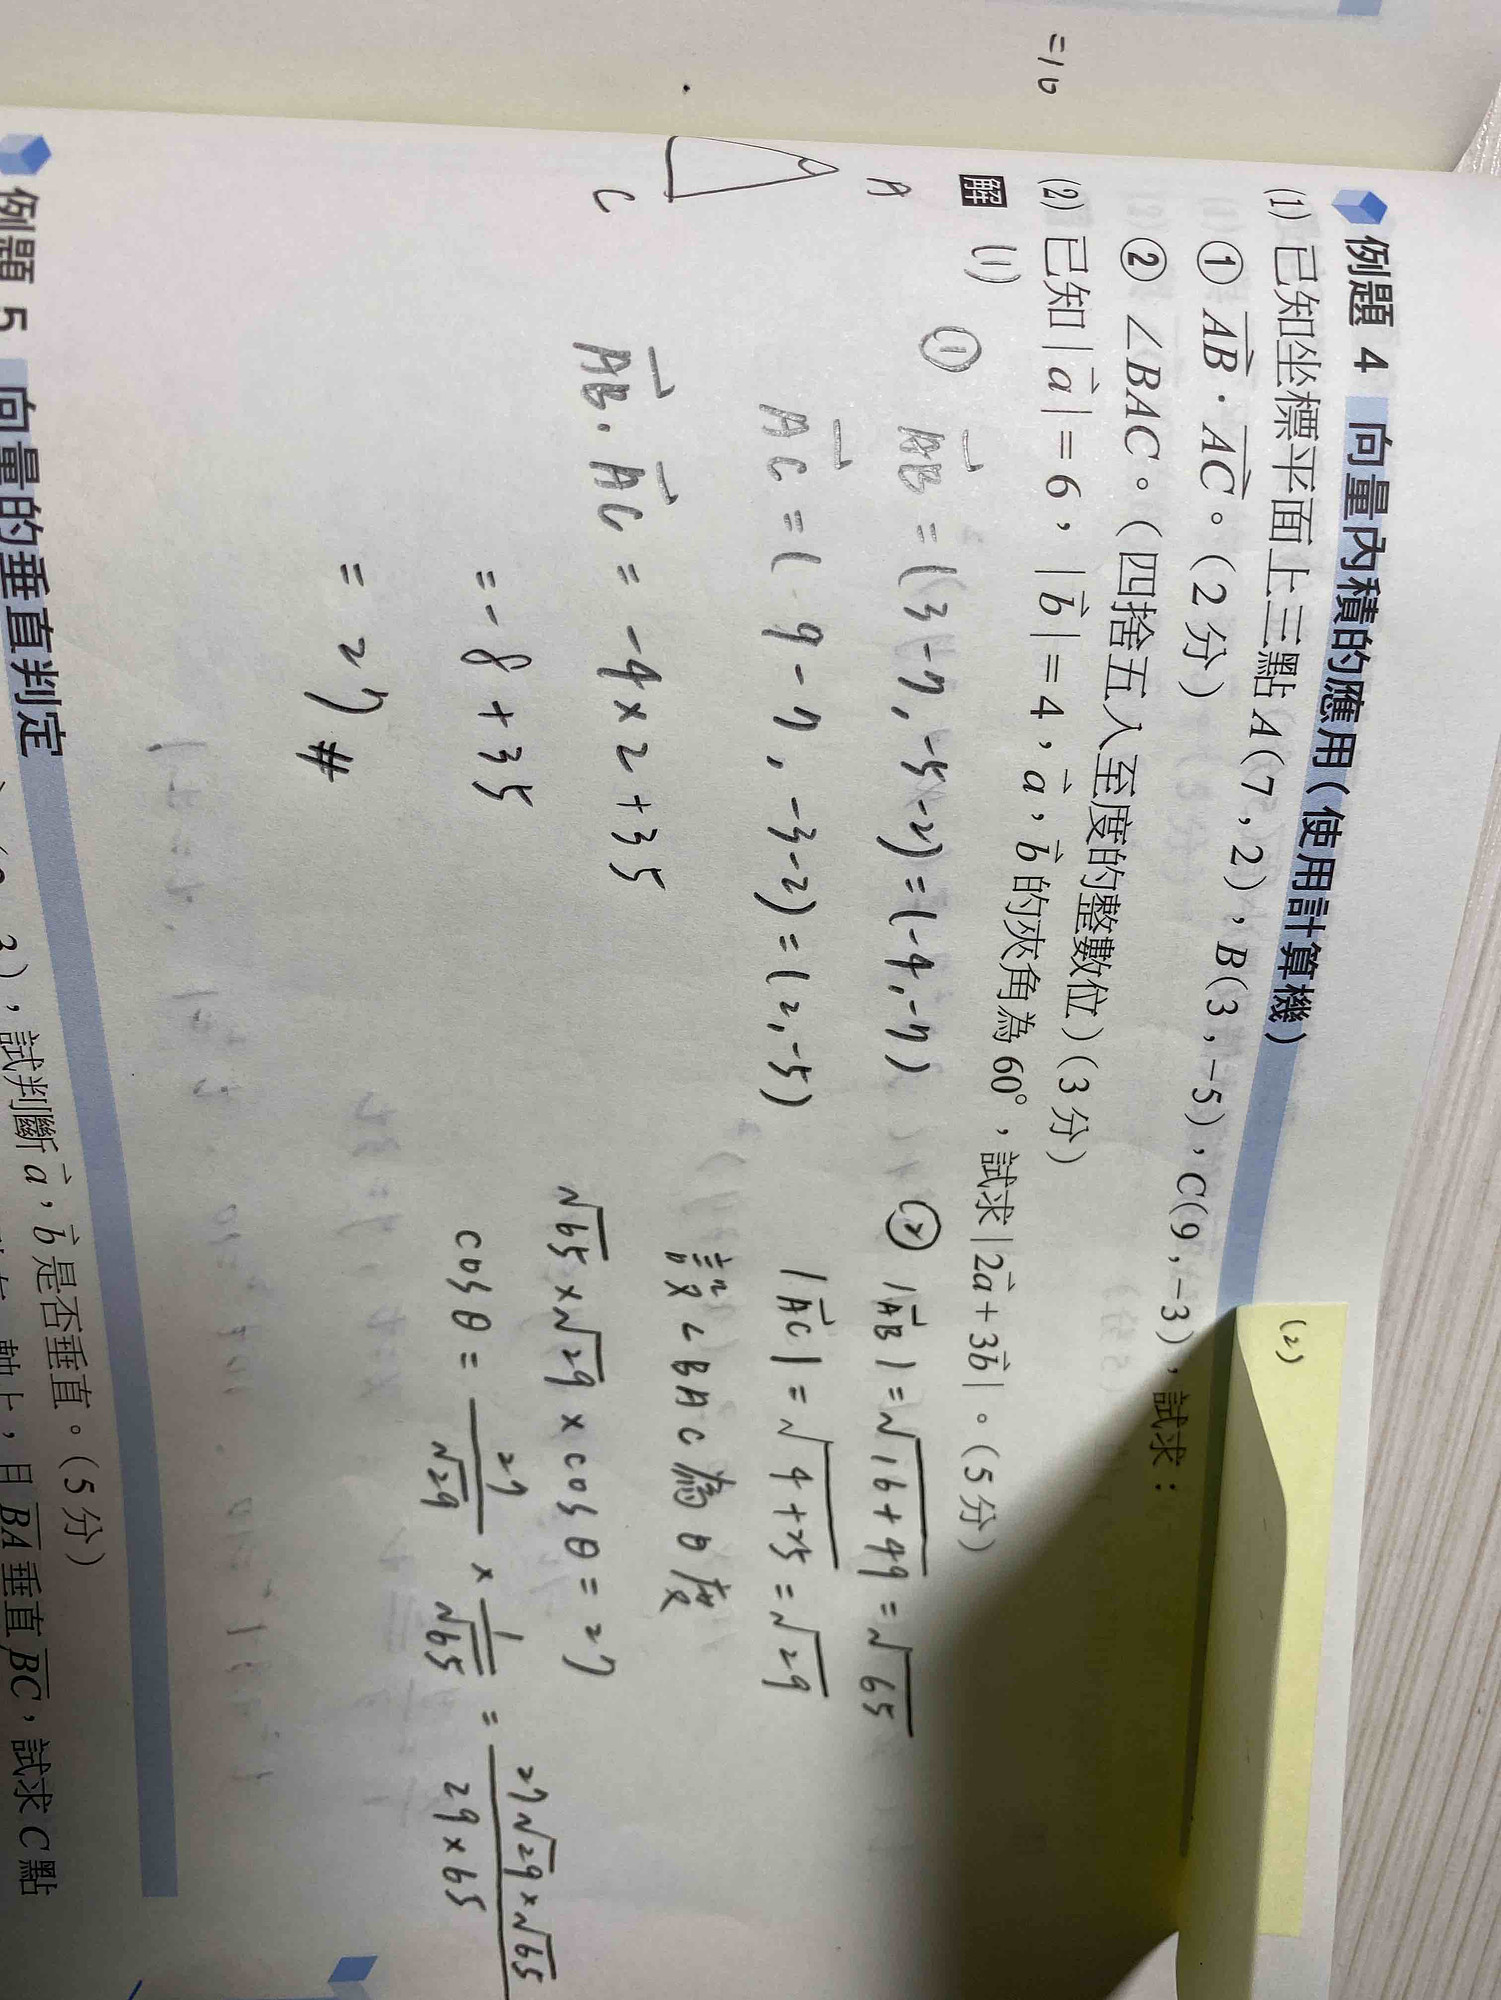 =10
例題 4 向量內積的應用(使用計算機)
(1) 已知坐標平面上三點 A(7,2)、B(3,-5)、C(9,-3),試求:
① AB⃗ · AC⃗。(2分)
② ∠BAC。(四捨五入至度的整數位)(3分)
(2) 已知|a⃗|=6,|b⃗|=4,a⃗,b⃗的夾角為60°,試求|2a⃗+3b⃗|。(5分)
(2)
解 (1) ① AB⃗ = (3-7, -5-2) = (-4, -7)
AC⃗ = (9-7, -3-2) = (2, -5)
AB⃗·AC⃗ = -4×2+35
= -8+35
= 27 #
A
C
② |AB⃗| = √16+49 = √65
|AC⃗| = √4+25 = √29
設∠BAC為θ度
√65×√29×cosθ=27
cosθ = 27/√29 × 1/√65 = 27√29×√65/29×65
例題 5 向量的垂直判定
3),試判斷a⃗,b⃗是否垂直。(5分)
軸上,且BA垂直BC,試求C點